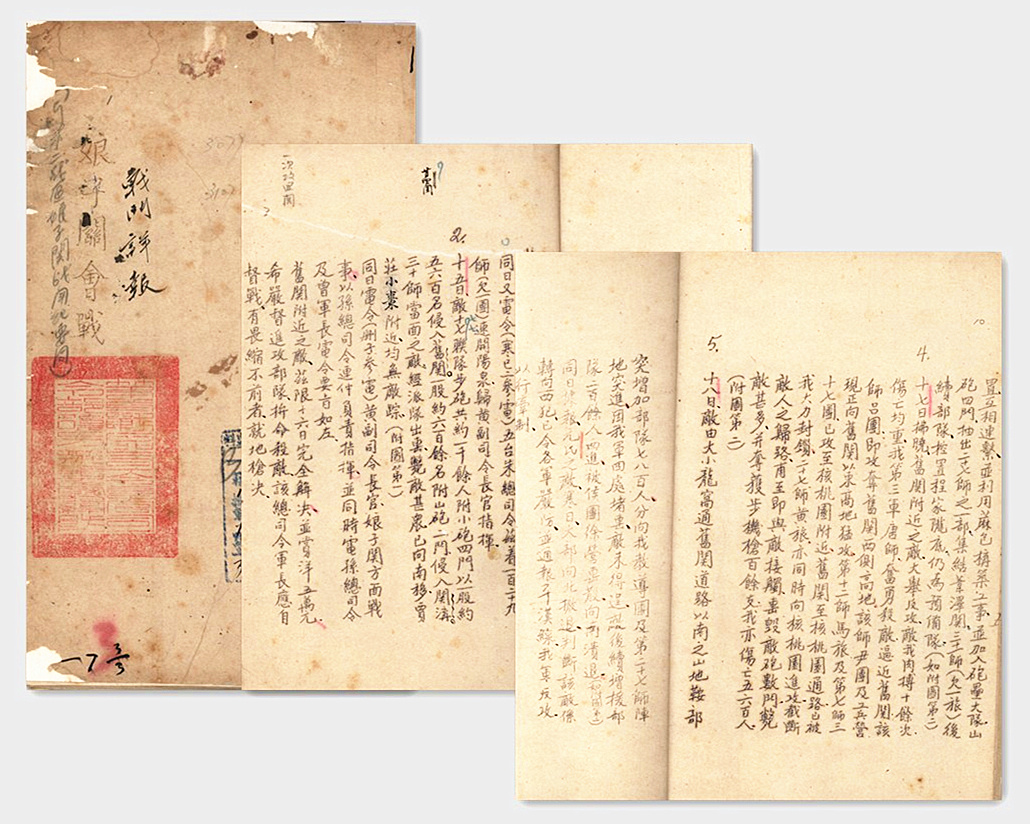 戰鬥詳報
娘子關會戰
一七号
一次攻旧関
2.
同日又電令(寒巳二參電)五台朱總司令飭着一百二十九
師(欠一團)速開陽泉歸黃副司令長官指揮
十五日敵七七聯隊步砲共約一千餘人附小砲四門以股約
五六百名侵入舊関一股約六百餘名附山砲二門侵入関溝
三十師當面之敵經派隊出擊斃敵甚衆已向南移賈
莊小棗附近均無敵踪(附圖第一)
同日電令(刪子參電)黃副司令長官娘子関方面戰
事以孫總司令連仲負責指揮並同時電孫總司令
及曾軍長電令要旨如左
舊関附近之敵茲限十六日完全解決並賞洋五萬元
希嚴督進攻部隊拚命殺敵該總司令軍長應自
督戰有畏縮不前者就地槍決
10
置互相連繫並利用蔴包構築工事並加入砲壘大隊山
砲四門抽出二七師之一部集結葦澤関三十師(欠一旅)後
續部隊控置程家隴底仍為預備隊(如附圖第二)
4.
十七日拂曉舊関附近之敵大舉反攻敵我肉搏十餘次
傷亡均重我第三軍唐師奮勇殺敵逼近舊関該
師呂團即攻奪舊関西側高地該師尹團及工兵營
現正向舊関以東高地猛攻第十二師馬旅及第七師三
十七團已攻至核桃園附近舊関至核桃園通路已被
我火力封鎖二十七師黃旅亦同時向核桃園進攻截斷
敵人之歸路甫至即與敵接觸毀敵砲數門斃
敵甚多并奪獲步機槍百餘支我亦傷亡五六百人
(附圖第二)
5.
十八日敵由大小龍窩通舊関道路以南之山地鞍部
突增加部隊七八百人分向我教導團及第二十七師陣
地突進因我軍四處堵擊敵未得逞敵後續增援部
隊二百餘人四進被佳團徐營擊向南潰退
同日
轉向西犯已令各軍嚴防並通報平漢綫我軍反攻
以行牽制